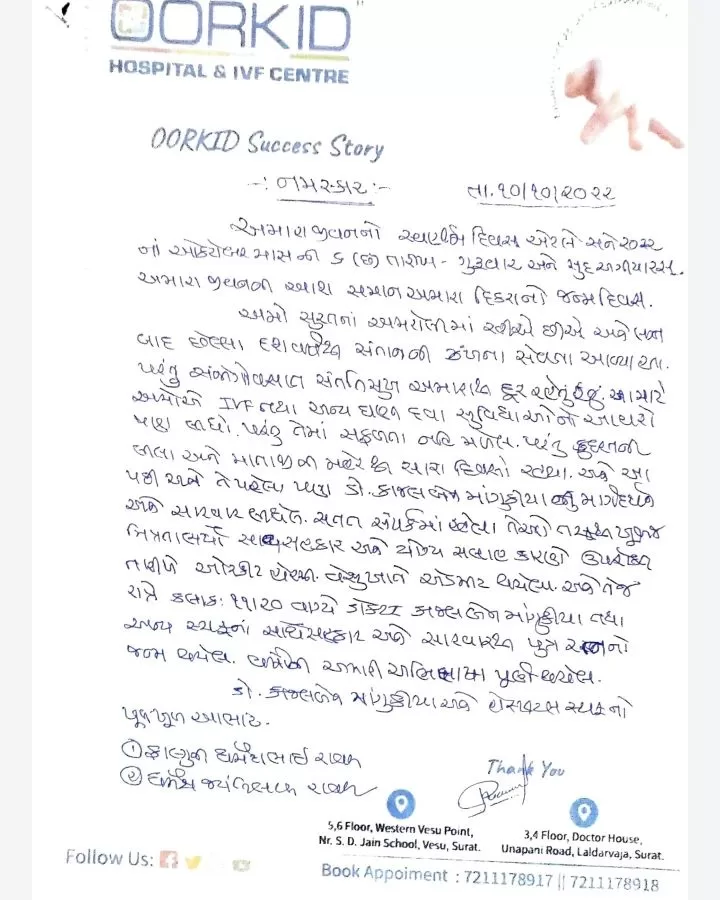 OORKID
HOSPITAL & IVF CENTRE
OORKID Success Story
-: નમસ્કાર :-
તા.૧૦/૧૦/૨૦૨૨
અમારા જીવનનો સ્વર્ણિમ દિવસ એટલે સને ૨૦૨૨
નાં ઓક્ટોબર માસ ની ૬ (છ) તારીખ - ગુરુવાર અને સુદ અગીયારસ.
અમારા જીવનની આશ સમાન અમારા દિકરાનો જન્મદિવસ.
અમો સુરતનાં અમરોલીમાં રહીએ છીએ અને લગ્ન
બાદ છેલ્લા દશ વર્ષથી સંતાનની ઝંખના સેવતા આવ્યા હતા.
પરંતુ સંજોગોવસાત સંતતિસુખ અમારાથી દૂર રહેતું હતું. આ માટે
અમોએ IVF તથા અન્ય ઘણી દવા સુવિધાઓનો આશરો
પણ લીધો. પરંતુ તેમાં સફળતા નહિ મળેલ. પરંતુ કુદરતની
લીલા અને માતાજીની મહેરથી સારા દિવસો રહ્યા. અને આ
પછી અને તે પહેલા પણ ડો. કાજલબેન માંગુકીયાનું માર્ગદર્શન
અને સારવાર લીધેલ. સતત સંપર્કમાં રહેલા તેઓ તરફથી ખુબજ
સાથસહકાર અને યોગ્ય સલાહ કારણે ઉપરોક્ત
તારીખે ઓરકીડ હોસ્પી. વેસુ ખાતે એડમીટ થયેલા. અને તેજ
રાત્રે કલાક: ૧૧/૨૦ વાગ્યે ડોક્ટર કાજલબેન માંગુકીયા તથા
અન્ય સ્ટાફનાં સાથસહકાર અને સારવારથી પુત્ર રત્નનો
જન્મ થયેલ. અમારી અભિલાષા પૂર્ણ થયેલ.
ડો. કાજલબેન માંગુકીયા અને હોસ્પિટલ સ્ટાફનો
ખુબ ખુબ આભાર.
① ફાલ્ગુની ધર્મેશભાઈ રાવલ
② ધર્મેશ જયંતિલાલ રાવલ
Thank You
5,6 Floor, Western Vesu Point,
Nr. S. D. Jain School, Vesu, Surat.
3,4 Floor, Doctor House,
Unapani Road, Laldarvaja, Surat.
Follow Us:
Book Appoiment : 7211178917 || 7211178918